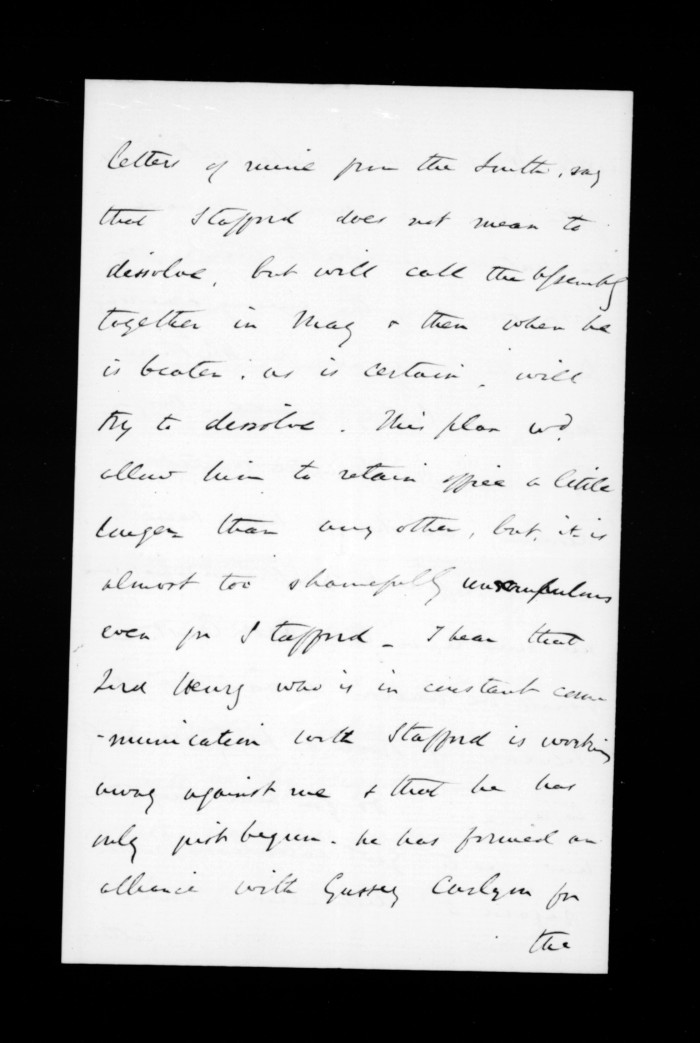 letters of mine from the South, say
that Stafford does not mean to
dissolve, but will call the Assembly
together in May & then when he
is beaten, as is certain, will
try to dissolve. This plan wd.
allow him to retain office a little
longer than any other, but, it is
almost too shamefully unscrupulous
even for Stafford - I hear that
Lord Henry who is in constant com
-munication with Stafford is working
away against me & that he has
only just begun. he has formed an
alliance with Gussey for
the